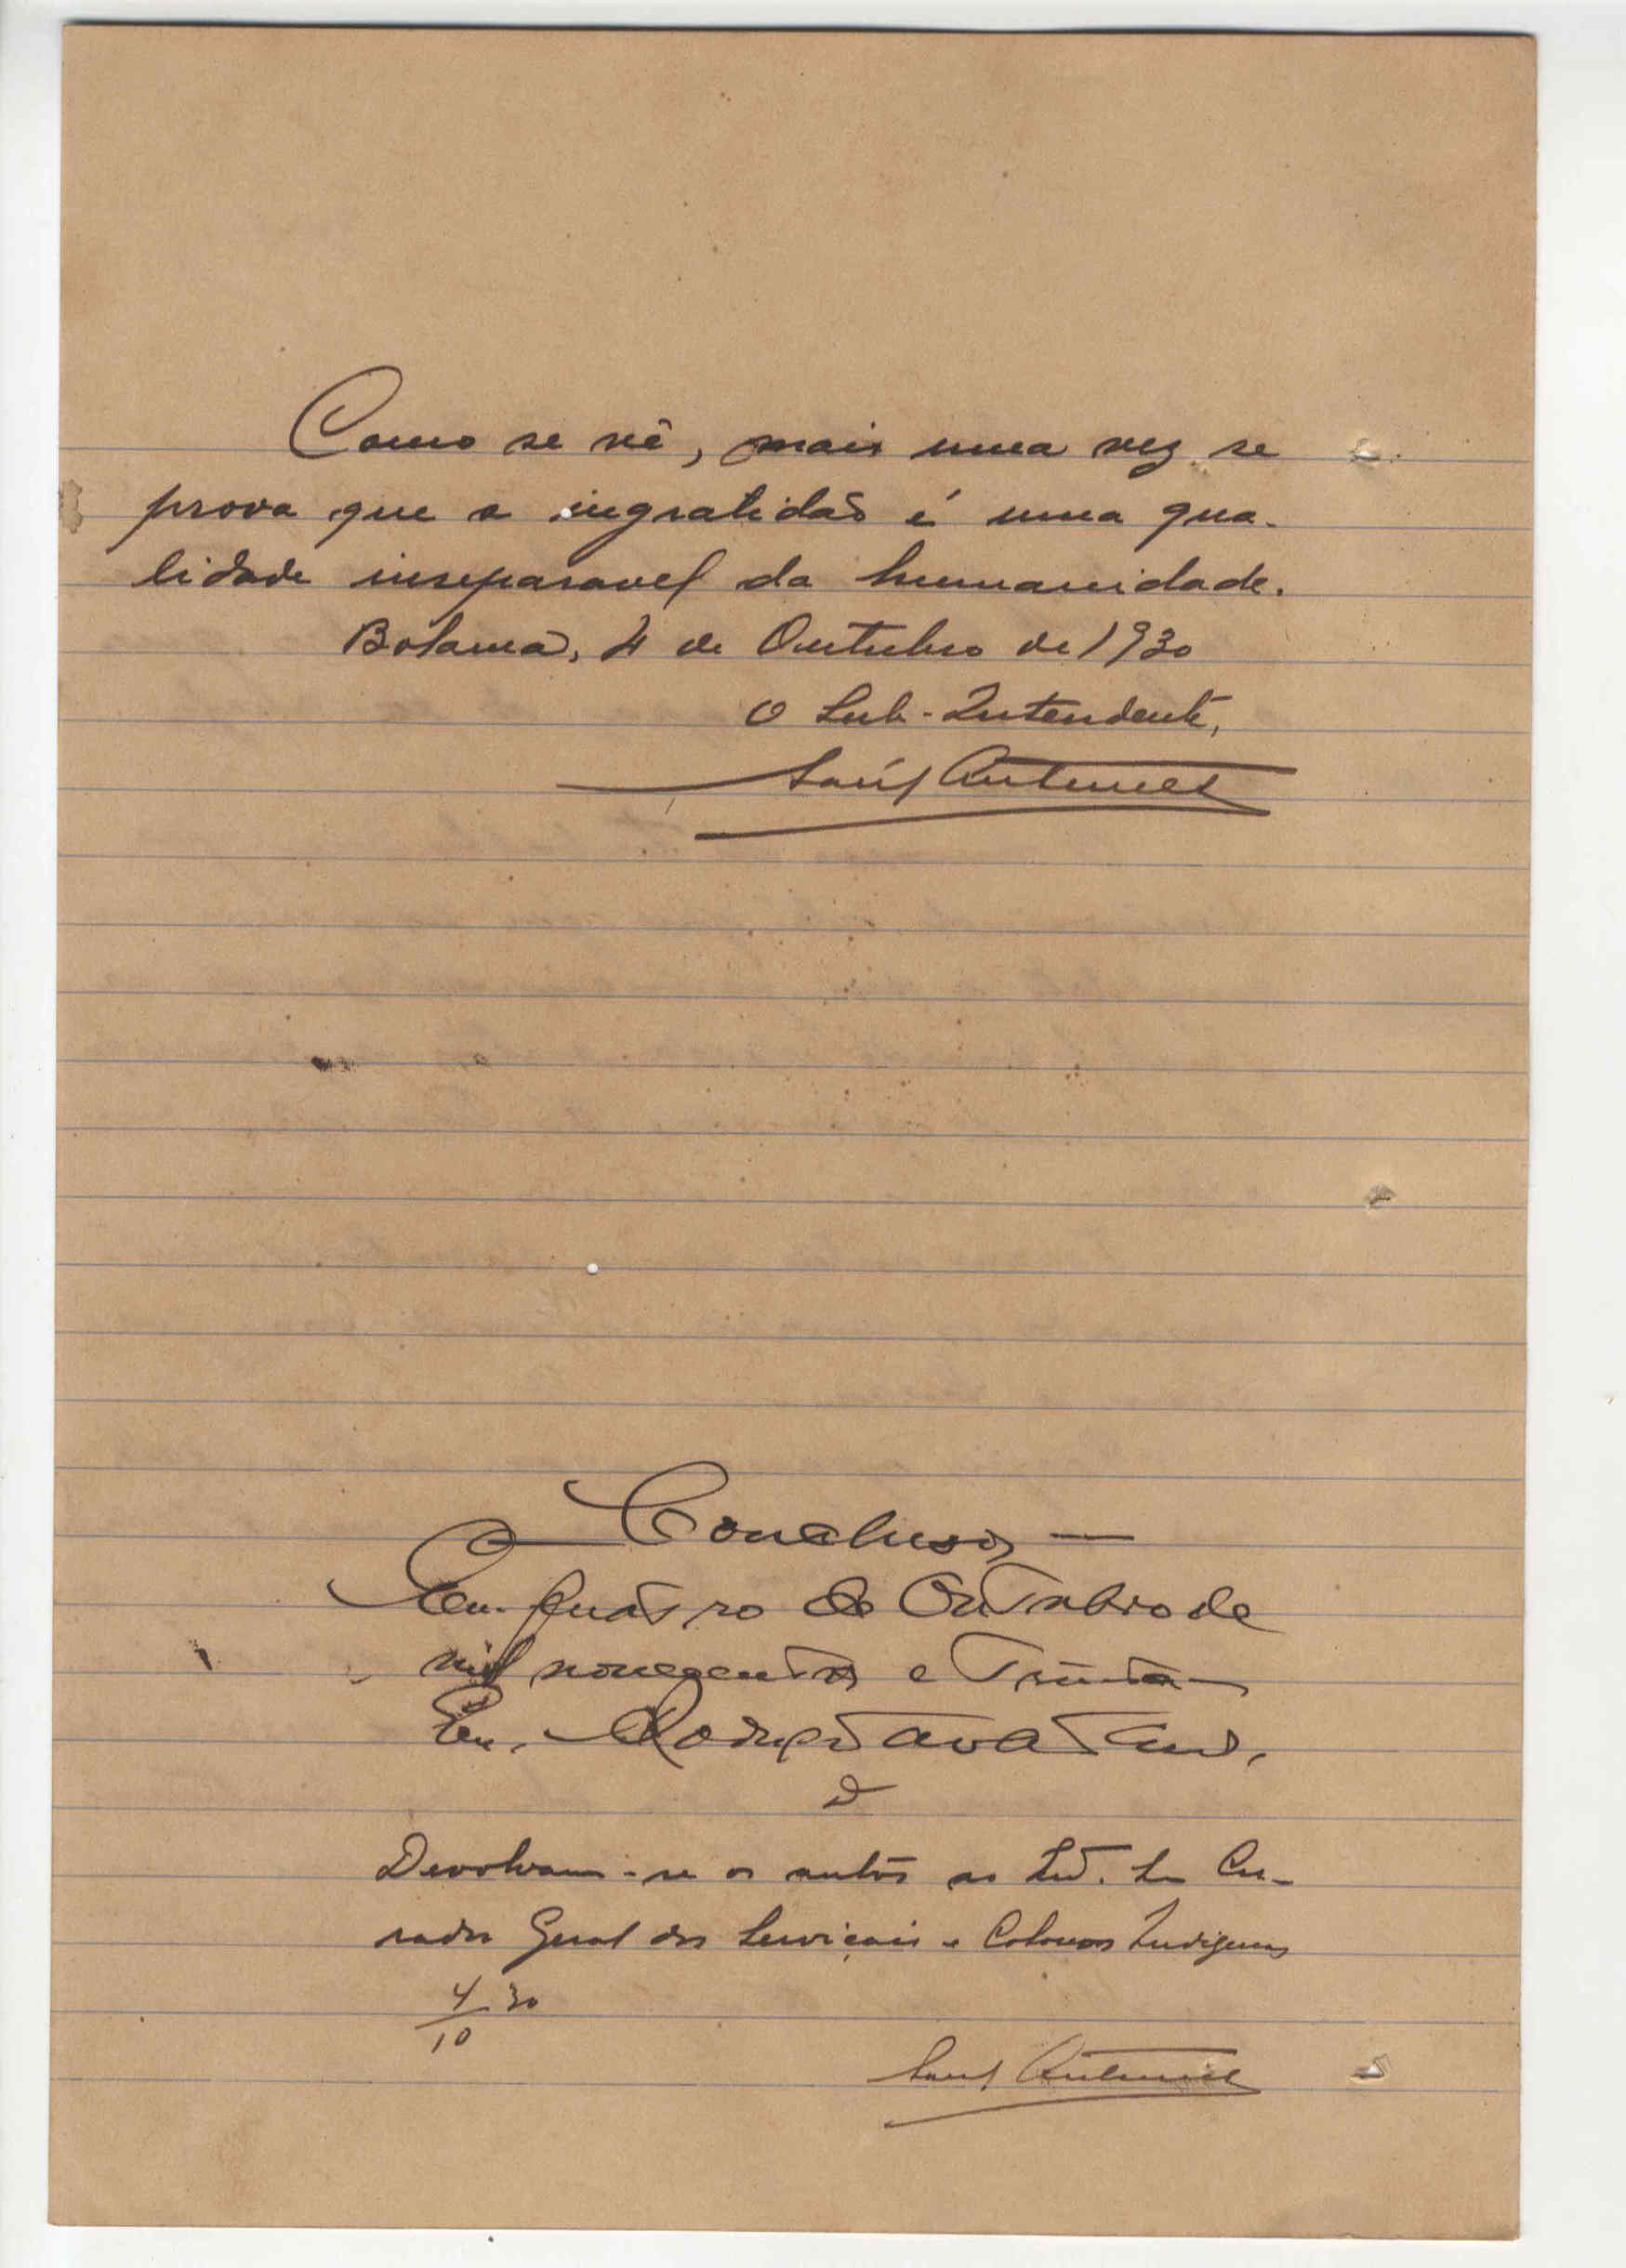 Como se vê, mais uma vez se
prova que a ingratidão é uma qua-
lidade inseparavel da humanidade.
Bolama, 4 de Outubro de 1930
O Sub-Intendente,
Concluso,
Em quatro de Outubro de
mil novecentos e trinta
Eu,
D
Devolvam-se os autos ao Cu-
rador Geral dos Serviçais e Colonos Indigenas
4/10 30